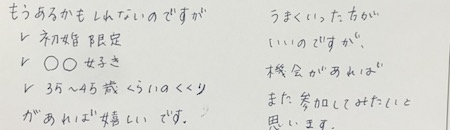 もうあるかもしれないのですが
✓ 初婚限定
✓ ○○好き
✓ 35〜45歳くらいのくくり
があれば嬉しいです。
うまくいった方が
いいのですが、
機会があれば
また参加してみたいと
思います。